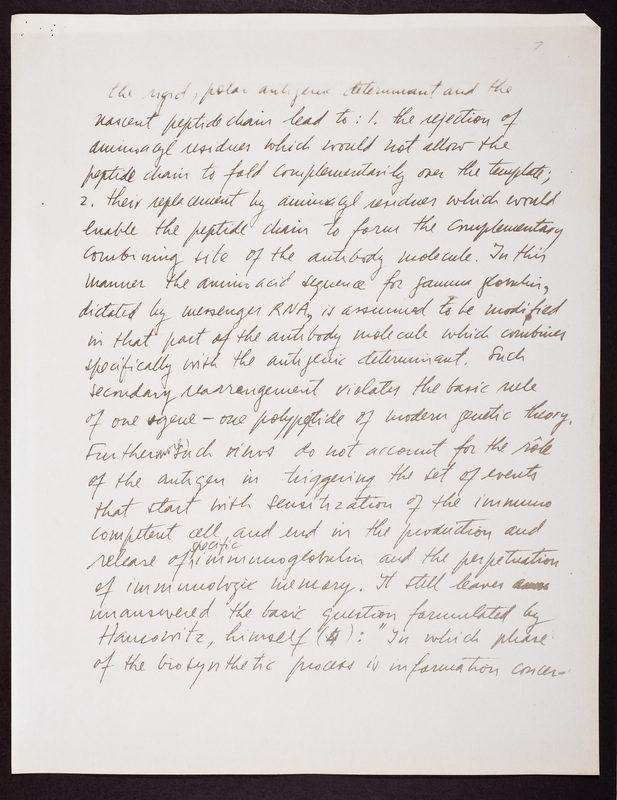 7
the rigid, polar antigenic determinant and the
nascent peptide chain lead to: 1. the rejection of
aminoacyl residues which would not allow the
peptide chain to fold complementarily over the template;
2. their replacement by aminoacyl residues which would
enable the peptide chain to form the complementary
combining site of the antibody molecule. In this
manner the amino acid sequence for gamma globulin,
dictated by messenger RNA, is assumed to be modified
in that part of the antibody molecule which combines
specifically with the antigenic determinant. Such
secondary rearrangement violates the basic rule
of one gene - one polypeptide of modern genetic theory.
Further such views do not account for the rôle
of the antigen in triggering the set of events
that start with sensitization of the immuno
competent cell, and end in the production and
release of specific immunoglobulin and the perpetuation
of immunologic memory. It still leaves
unanswered the basic question formulated by
Haurowitz, himself (): "In which phase
of the biosynthetic process is information concer-